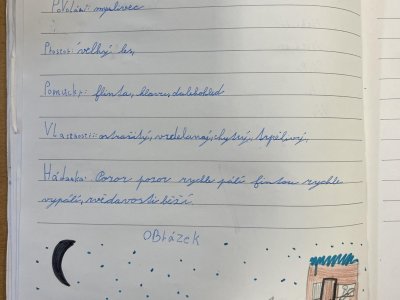 Povolání: myslivec
Prostor: velký les,
Pomůcky: flinta, klovec, dalekohled
Vlastnosti: ostražitý, vzdělaný, chytrý, trpělivý,
Hádanka: Pozor pozor rychle pálí flintou rychle
vypálí, zvědavostí běží.
OBRÁZEK